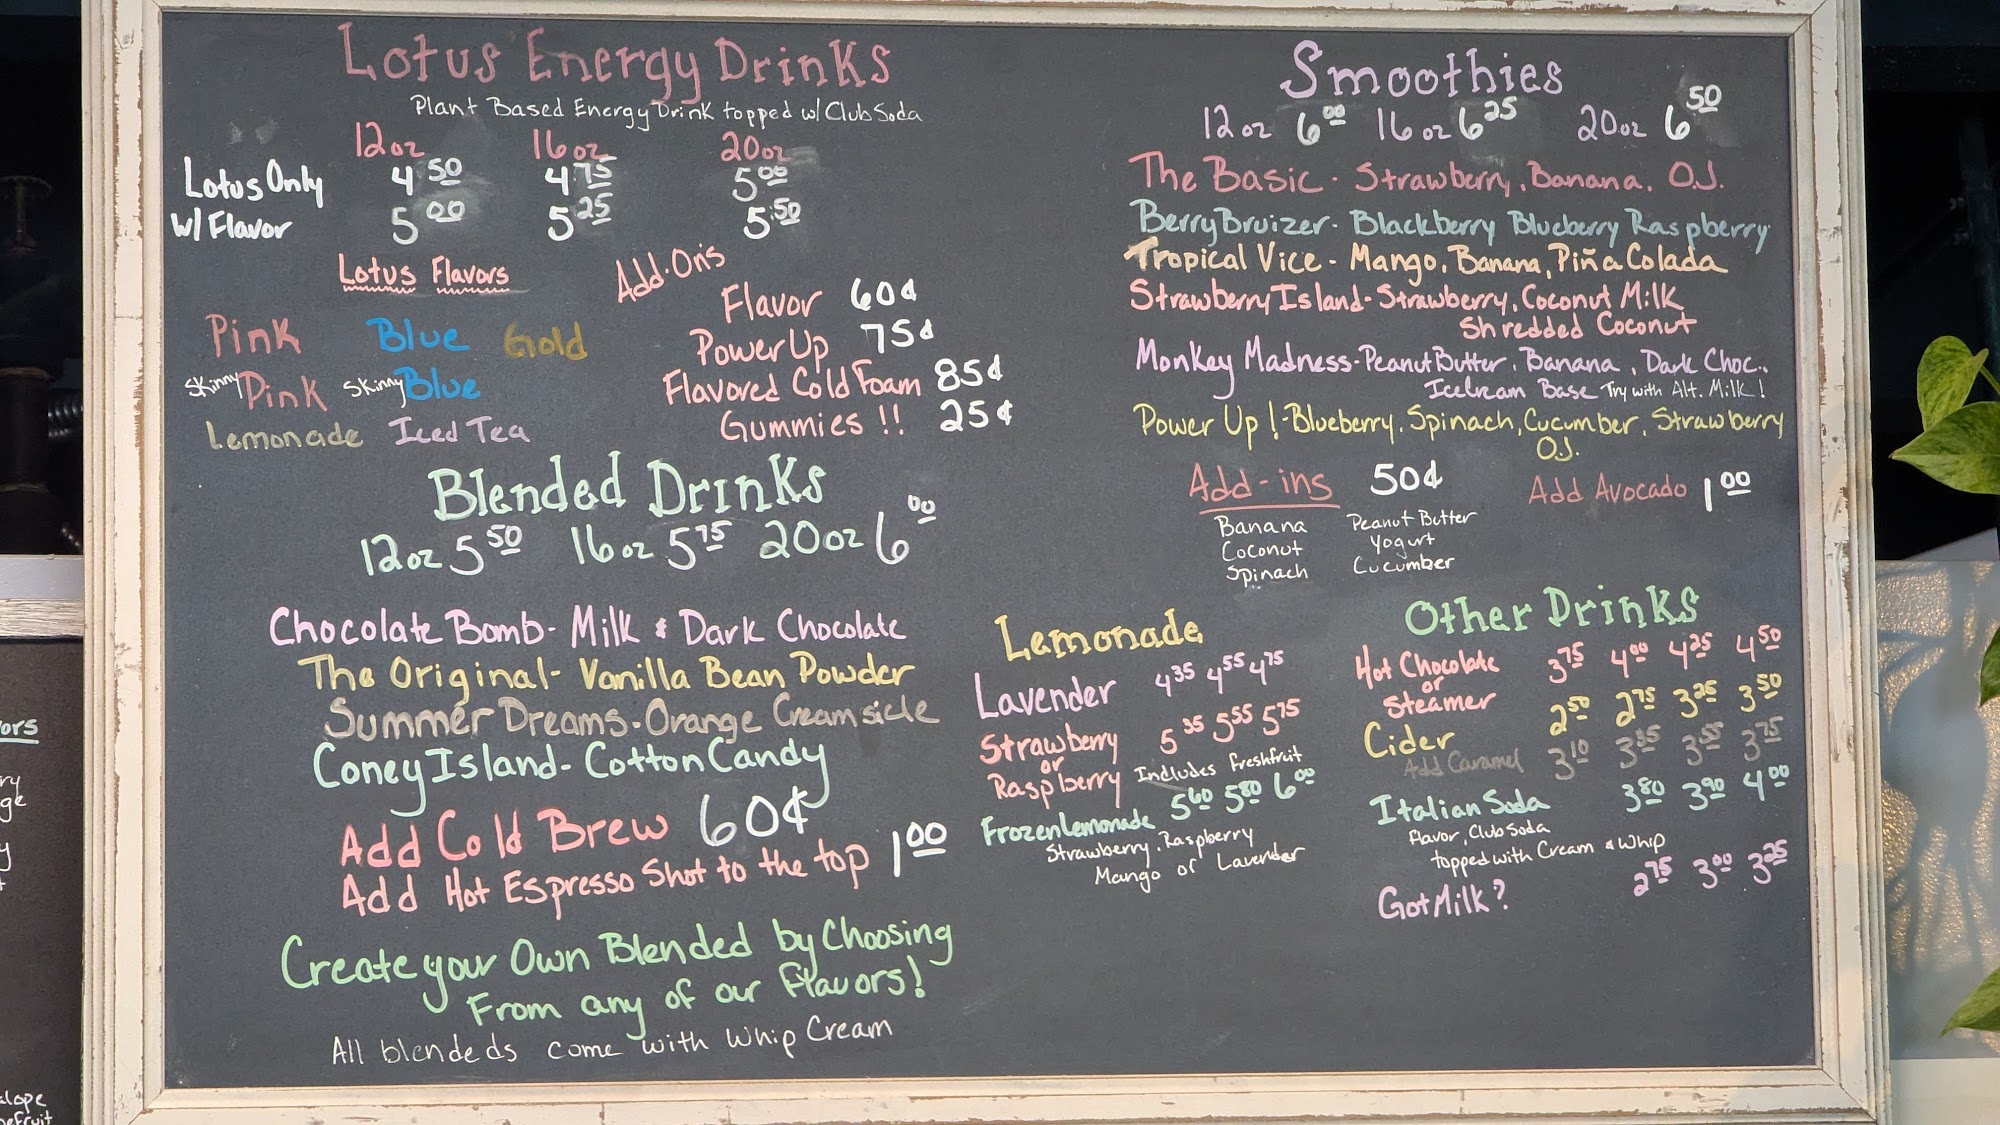 Lotus Energy Drinks
Plant Based Energy Drink topped w/ Club Soda
12oz 16oz 20oz
Lotus Only 4 50 4 75 5 00
w/ Flavor 5 00 5 25 5 50
Lotus Flavors
Pink Blue Gold
Skinny Pink Skinny Blue
Lemonade Iced Tea
Add-Ons
Flavor 60¢
Power Up 75¢
Flavored Cold Foam 85¢
Gummies !! 25¢
Blended Drinks
12oz 5 50 16oz 5 75 20oz 6 00
Chocolate Bomb - Milk & Dark Chocolate
The Original - Vanilla Bean Powder
Summer Dreams - Orange Creamsicle
Coney Island - Cotton Candy
Add Cold Brew 60¢
Add Hot Espresso Shot to the top 1 00
Create your Own Blended by Choosing
From any of our Flavors!
All blendeds come with Whip Cream
Smoothies
12oz 6 00 16oz 6 25 20oz 6 50
The Basic - Strawberry, Banana, O.J.
Berry Bruizer - Blackberry Blueberry Raspberry
Tropical Vice - Mango, Banana, Piña Colada
Strawberry Island - Strawberry, Coconut Milk
Shredded Coconut
Monkey Madness - Peanut Butter, Banana, Dark Choc..
Icecream Base Try with Alt. Milk!
Power Up! - Blueberry, Spinach, Cucumber, Strawberry
O.J.
Add-ins 50¢ Add Avocado 1 00
Banana Peanut Butter
Coconut Yogurt
Spinach Cucumber
Lemonade
Lavender 4 35 4 55 4 75
Strawberry 5 35 5 55 5 75
or
Raspberry Includes Freshfruit
Frozen Lemonade 5 60 5 80 6 00
Strawberry, Raspberry
Mango or Lavender
Other Drinks
Hot Chocolate 3 75 4 00 4 25 4 50
or
Steamer
Cider 2 50 2 75 3 25 3 50
Add Caramel 3 10 3 35 3 55 3 75
Italian Soda 3 80 3 90 4 00
Flavor, Club Soda
topped with Cream & Whip
Got Milk? 2 75 3 00 3 25
ors
ry
ge
y
alope
pefruit